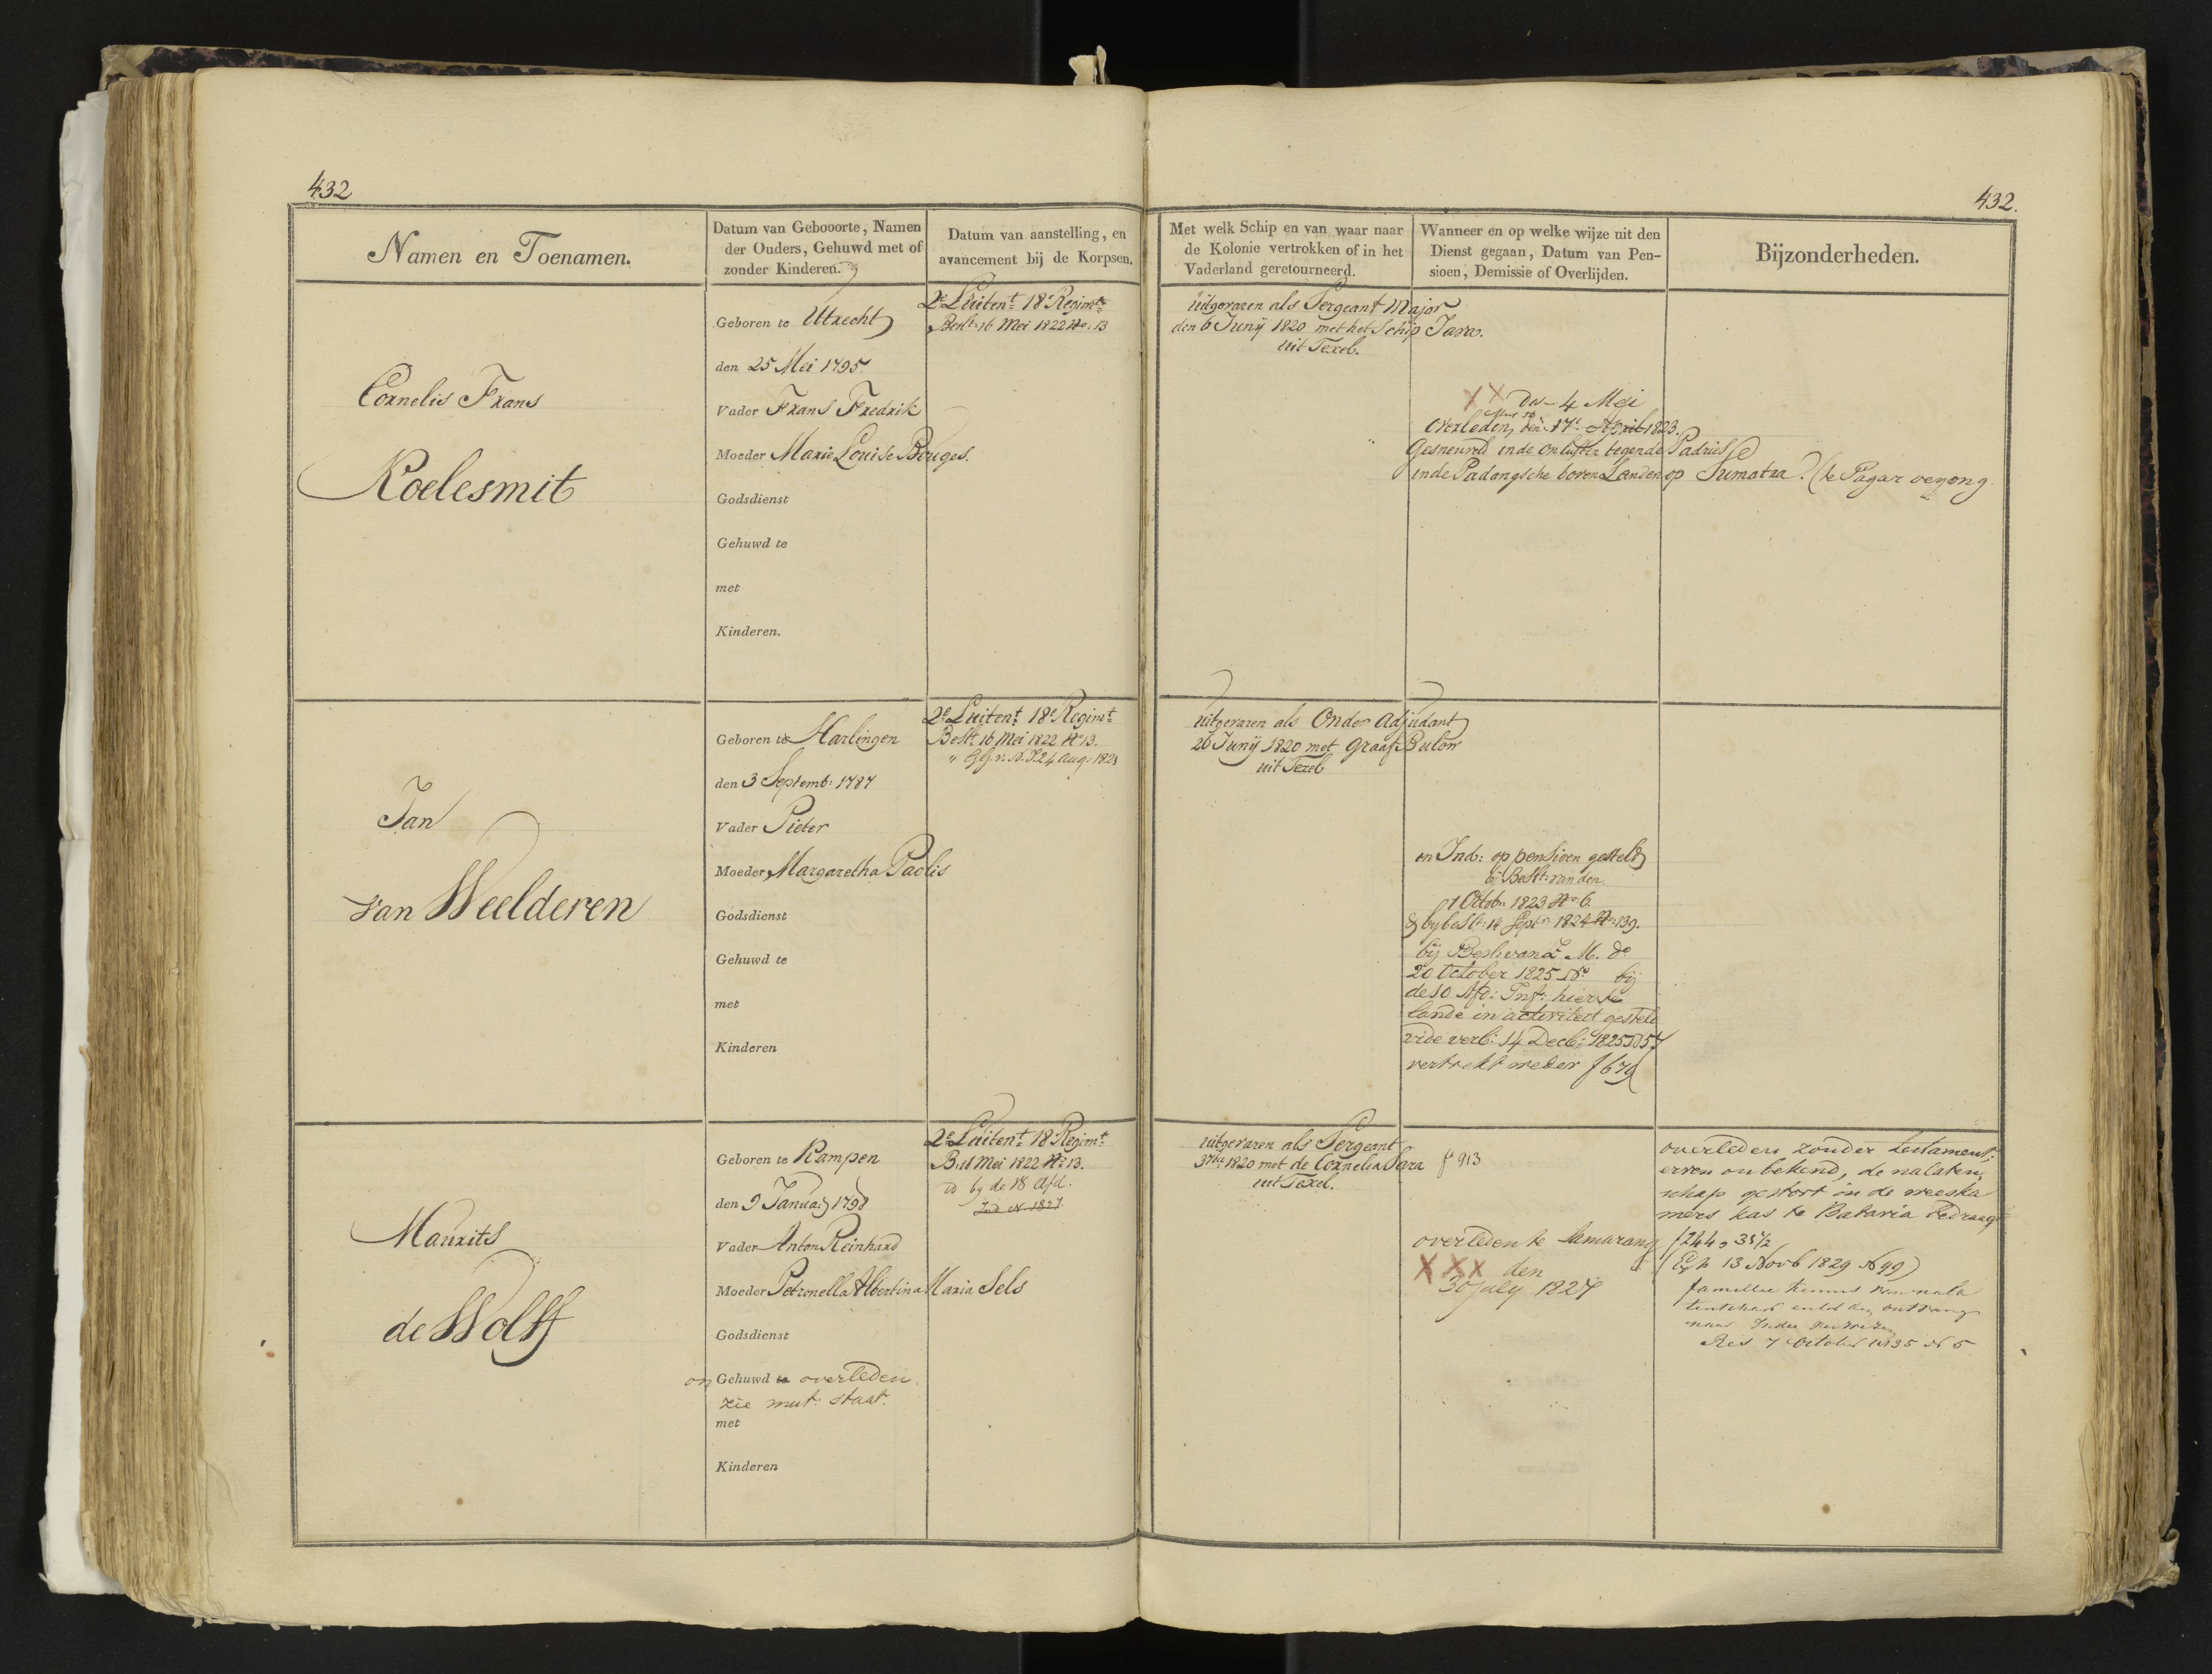 432
432.
Namen en Toenamen.
Datum van Gebooorte, Namen
der Ouders, Gehuwd met of
zonder Kinderen.
Datum van aanstelling, en
avancement bij de Korpsen.
Met welk Schip en van waar naar
de Kolonie vertrokken of in het
Vaderland geretourneerd.
Wanneer en op welke wijze uit den
Dienst gegaan, Datum van Pen-
sioen, Demissie of Overlijden.
Bijzonderheden.
Cornelis Frans
Roelesmit
Geboren te Utrecht
den 25 Mei 1795.
Vader Frans Fredrik
Moeder Marie Louise Bouges.
Godsdienst
Gehuwd te
met
Kinderen.
2e Luitent 18e Regimt
Beslt 16 Mei 1822 No. 13
uitgevaren als Sergeant Major
den 6 Junij 1820 met het Schip Java.
uit Texel.
XX den 4 Mei
overleden, den 17e April 1823.
Gesneuveld in de onlusten tegen de Padries
in de Padangsche boven Landen op Sumatra. (te Pagar oeyong
Jan
van Weelderen
Geboren te Harlingen
den 3 Septemb: 1787
Vader Pieter
Moeder Margaretha Paolis
Godsdienst
Gehuwd te
met
Kinderen
2e Luitent 18e Regimt
Beslt 16 Mei 1822 No 13.
" G.G. v. N.I. 24 Aug: 1821
uitgevaren als Onder Adjudant
26 Junij 1820 met Graaf Bulow
uit Texel
in Ind: op pensioen gesteld
bij Beslt: van den
1 Octobr 1823 No. 6.
& by beslt: 14 Septr: 1824 No: 139.
bij Besl: van Z. M. do
20 October 1825 No bij
de 10 Afd: Inf: hier te
lande in activiteit gesteld
vide verb: 14 Decb: 1825 N 57
vertrekt weder f 679
Maurits
de Wolff
Geboren te Kampen
den 9 Januaj 1798
Vader Anton Reinhard
Moeder Petronella Albertina Maria Sels
Godsdienst
on Gehuwd te overleden
zie mut: staat.
met
Kinderen
2e Luitent 18e Regimt
B. 16 Mei 1822 No: 13.
id by de 18 Afd.
Ind N. 1827.
uitgevaren als Sergeant
1820 met de Cornelia Sara
uit Texel.
fo 913
overleden te Samarang
XXX den
30 July 1827
overleden zonder testament,
erven onbekend, de nalaten-
schap gestort in de weeska-
mers kas te Batavia bedraagt
f 244, 35 1/2
13 Novb 1829 N 99)
familie kennis van nala
tenschap
naar Indie
Res 7 October 1835 N 5